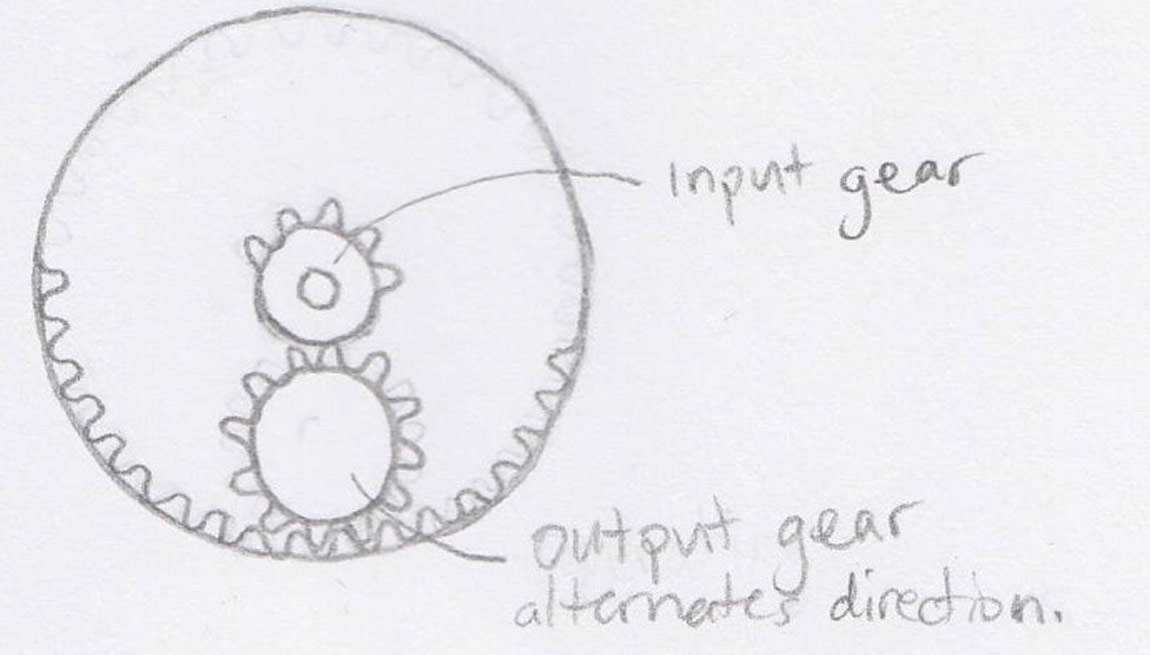 input gear
output gear
alternates direction.